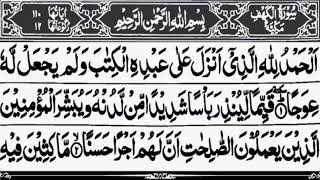 سُوْرَةُ الْكَهْفِ مَكِّيَّةٌ بِسْمِ اللهِ الرَّحْمٰنِ الرَّحِيْمِ اٰيَاتُهَا ١١٠ رُكُوْعَاتُهَا ١٢
اَلْحَمْدُ لِلّٰهِ الَّذِيْٓ اَنْزَلَ عَلٰى عَبْدِهِ الْكِتٰبَ وَلَمْ يَجْعَلْ لَّهٗ
عِوَجًا ۜ ١ قَيِّمًا لِّيُنْذِرَ بَاْسًا شَدِيْدًا مِّنْ لَّدُنْهُ وَيُبَشِّرَ الْمُؤْمِنِيْنَ
الَّذِيْنَ يَعْمَلُوْنَ الصّٰلِحٰتِ اَنَّ لَهُمْ اَجْرًا حَسَنًا ٢ مَّاكِثِيْنَ فِيْهِ